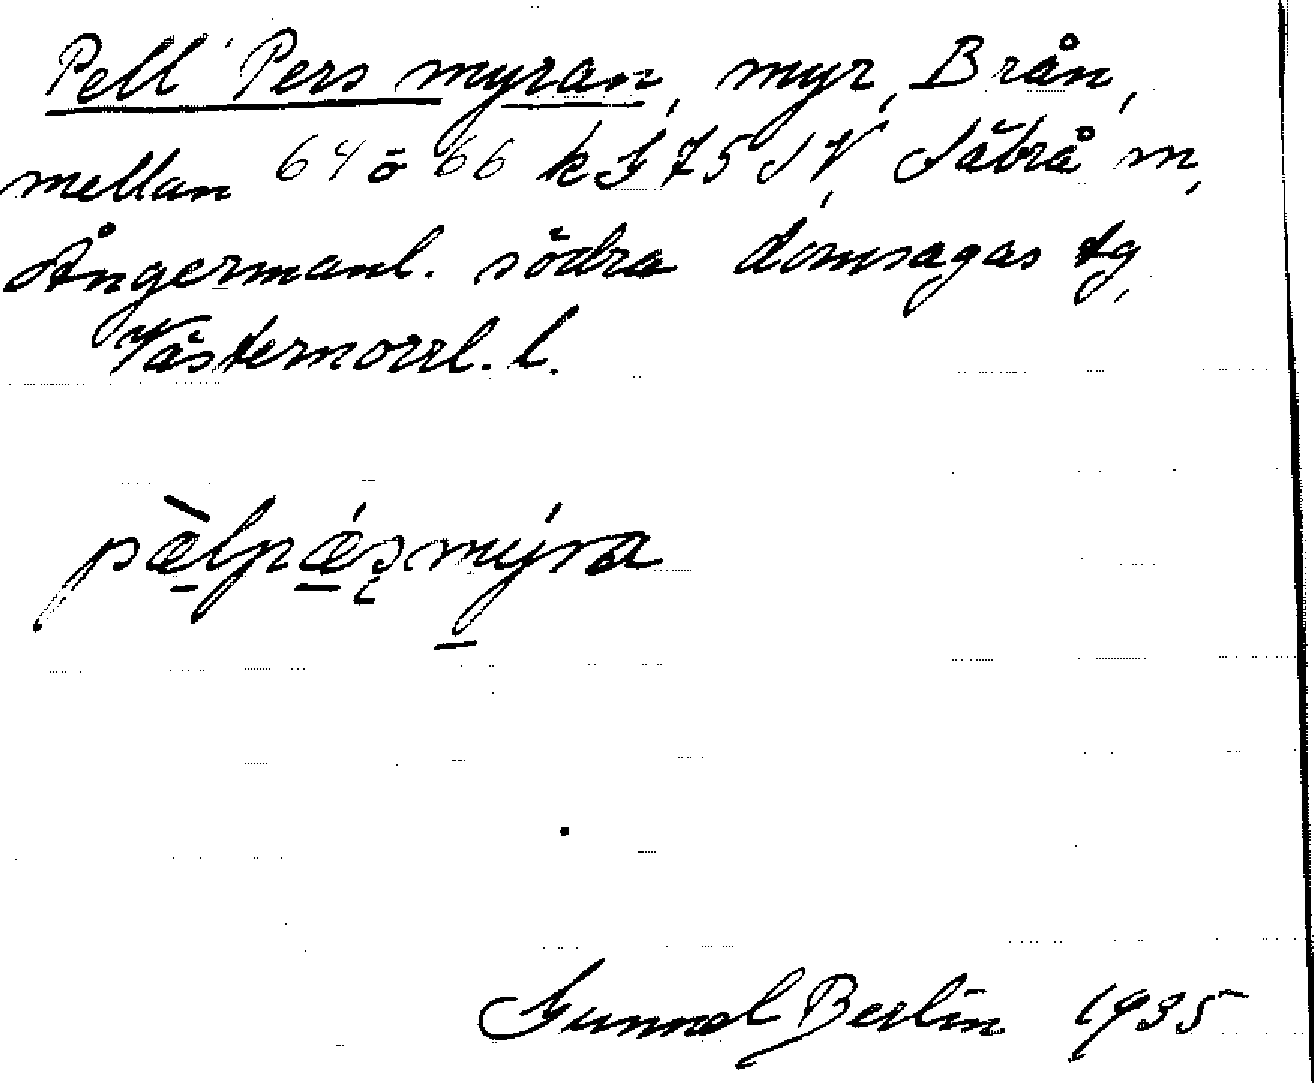 Pell Pers myran, myr, Brån,
mellan 64 o 66 k G 75 SV, Säbrå sn,
Ångermanl. södra domsagas tg,
Västernorrl. l.
pæ̀lpæ̀ʂmýra
Gunnel Berlin 1935